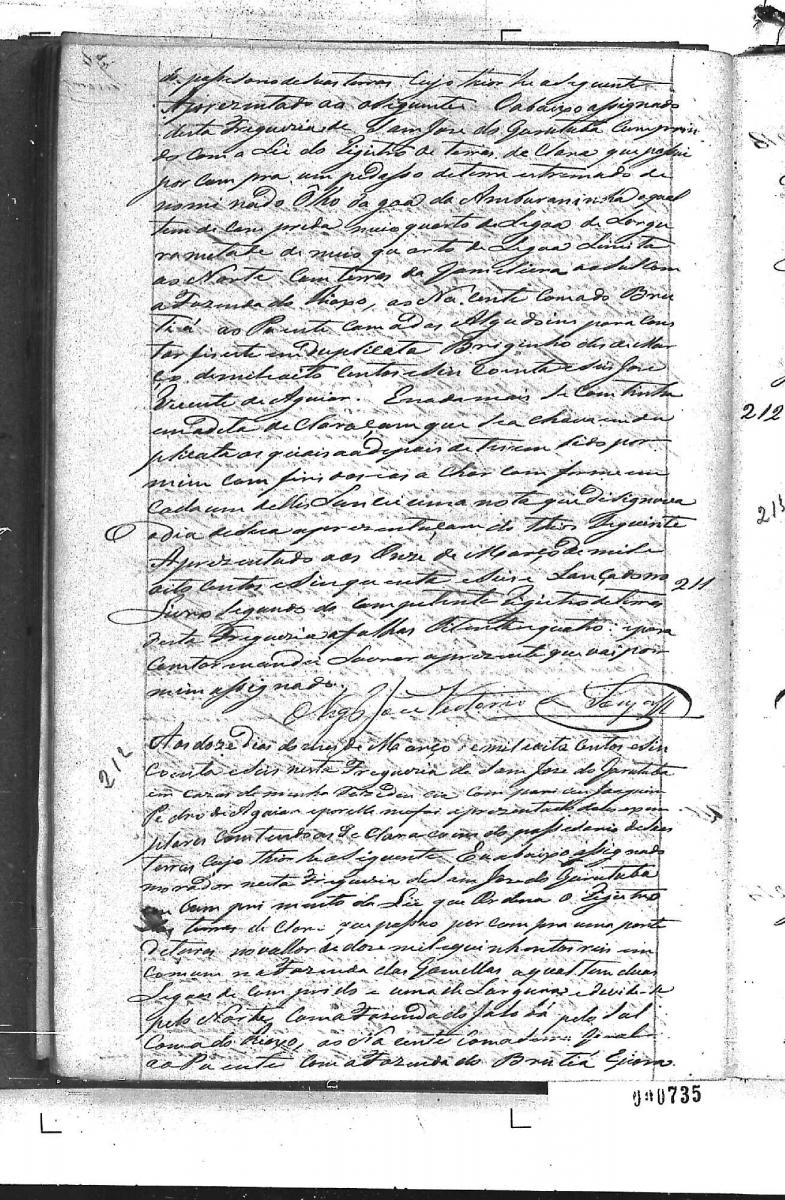 de pessoario de suas terras cujo thior he o seguinte
Aprezentado aos o seguinte O abaixo assignado
desta Freguezia de Sam Jose do Gurutuba Comprin
do com a Lei do Rigistro de terras, de Clara que possui
por Compra um pedasso de terra extremado de
nominado Ôlho dagoa da Amburaninha a qual
tem de Comprido meio quarto de Legoa de Largu
ra metade de meio quarto de Legoa Limita
ao Norte Com terras da Gamelleira ao Sul Com
a Fazenda do Riaxo, ao Nacente Com a do Bru
tiá ao Puente Com a das Algudois para Cons
tar fis este em duplicata Briginho des de Mar
ço de mil oito Centos e Sincoenta e Seis Joze
Vicente de Aguiar. E nada mais se Continha
em a dita de Claraçam que se a chava em du
plicata os quais a o depois de terem sido por
mim Comfiridos e as a Char Com forme em
cada um delles Lancei uma nota que designava
o dia de sua aprezentaçam do thior Siguinte
Aprezentado aos Onze de Março de mil e
oito Centos e Sincoenta e Seis e Lançado no
211
Livro Segundo do Competente Rigistro de terras
desta Freguezia a folhas Oitenta e quatro: e para
Constar mandei Lavrar a prezente que vai por
mim assignado.
O Vigº Joze Victorio de Souza
212
Aos doze dias do mes de Março de mil e oito Centos e Sin
coenta e Seis nesta Freguezia de Sam Joze do Gurutuba
em Cazas de minha Rezidencia Com pareceu Joaquim
Pedro de Aguiar e por elle me foi aprezentado dois exem
plares Contendo as de Claracoins do pessoario de suas
terras cujo thior he o Siguinte Eu abaixo assignado
morador nesta Freguezia de Sam Joze do Gurutuba
em Cum pri mento da Lei que Ordena o Rigistro
das terras de Claro que possuo por Compra uma parte
de terras no vallor de doze mil e quinhentos reis em
comum na Fazenda das Gamellas a qual tem duas
Legoas de Comprido e uma de Largura e devide-se
pelo Norte Com a Fazenda do pelo Sul
Com a do Riaxo, ao Nacente Com a do
ao Puente Com a Fazenda do Brutiá E para
212
000735